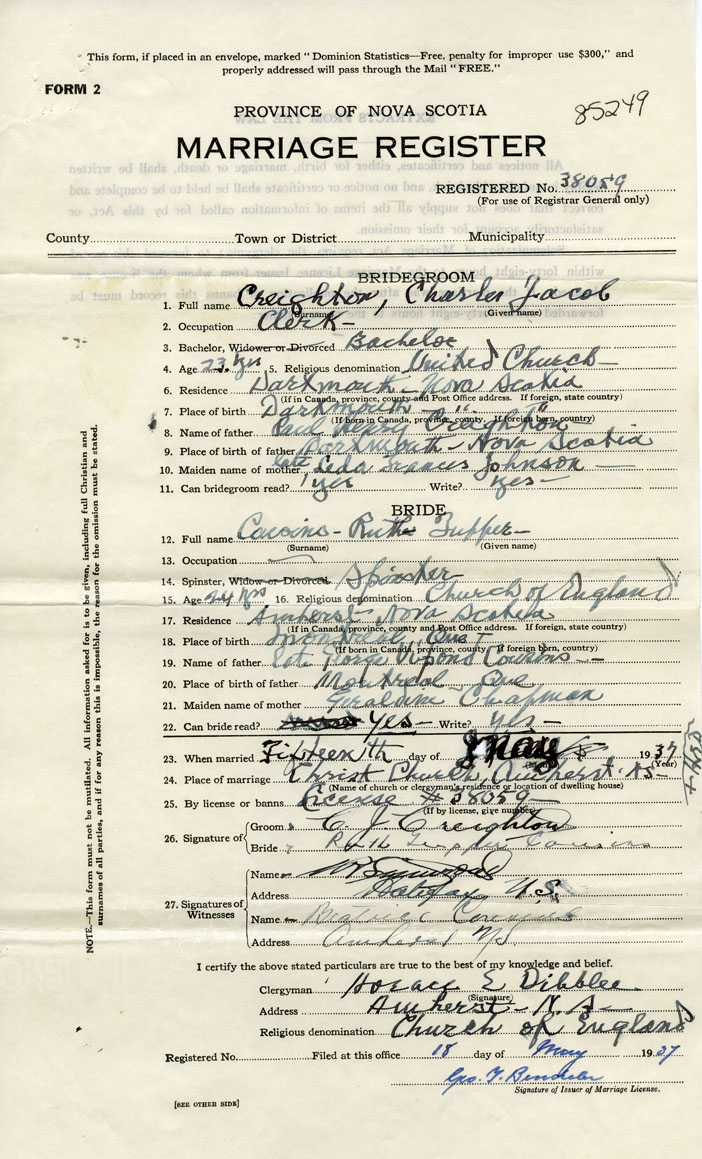 This form, if placed in an envelope, marked "Dominion Statistics—Free, penalty for improper use $300," and
properly addressed will pass through the Mail "FREE."
FORM 2
85249
PROVINCE OF NOVA SCOTIA
MARRIAGE REGISTER
REGISTERED No. 38059
(For use of Registrar General only)
County Town or District Municipality
BRIDEGROOM
1. Full name Creighton, Charles Jacob
(Surname) (Given name)
2. Occupation Clerk
3. Bachelor, Widower or Divorced Bachelor
4. Age 23 yrs 5. Religious denomination United Church
6. Residence Dartmouth - Nova Scotia
(If in Canada, province, county and Post Office address. If foreign, state country)
7. Place of birth Dartmouth " "
(If born in Canada, province, county. If foreign born, country)
8. Name of father Paul Henry Creighton
9. Place of birth of father Dartmouth - Nova Scotia
10. Maiden name of mother late Leda Frances Johnson
11. Can bridegroom read? yes Write? yes
BRIDE
12. Full name Cousins - Ruth Tupper
(Surname) (Given name)
13. Occupation
14. Spinster, Widow or Divorced Spinster
15. Age 24 yrs 16. Religious denomination Church of England
17. Residence Amherst, Nova Scotia
(If in Canada, province, county and Post Office address. If foreign, state country)
18. Place of birth Montreal, Que
(If born in Canada, province, county. If foreign born, country)
19. Name of father late George Vipond Cousins
20. Place of birth of father Montreal Que
21. Maiden name of mother Geraldine Chapman
22. Can bride read? Yes Write? Yes
23. When married Fifteenth day of May 1937
(Year)
24. Place of marriage Christ Church, Amherst NS
(Name of church or clergyman's residence or location of dwelling house)
25. By license or banns License # 38059
(If by license, give number)
26. Signature of Groom C. J. Creighton
Bride Ruth Tupper Cousins
27. Signatures of Witnesses
Name
Address Halifax N.S.
Name Beatrice Cousins
Address Amherst NS.
I certify the above stated particulars are true to the best of my knowledge and belief.
Clergyman Horace E Dibblee
(Signature)
Address Amherst - N.S.
Religious denomination Church of England
Registered No. Filed at this office 18 day of May 1937
Signature of Issuer of Marriage License.
[SEE OTHER SIDE]
NOTE.—This form must not be mutilated. All information asked for is to be given, including full Christian and
surnames of all parties, and if for any reason this is impossible, the reason for the omission must be stated.